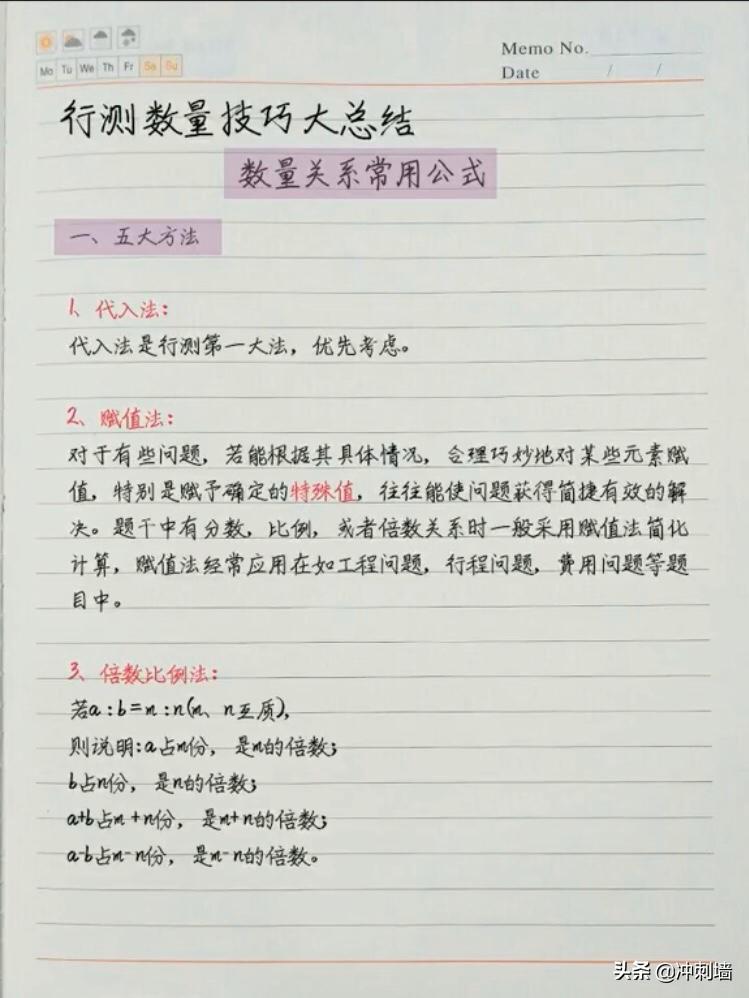 Memo No.
Mo Tu We Th Fr Sa Su
Date / /
行测数量技巧大总结
数量关系常用公式
一、五大方法
1、代入法:
代入法是行测第一大法，优先考虑。
2、赋值法:
对于有些问题，若能根据其具体情况，合理巧妙地对某些元素赋
值，特别是赋予确定的特殊值，往往能使问题获得简捷有效的解
决。题干中有分数，比例，或者倍数关系时一般采用赋值法简化
计算，赋值法经常应用在如工程问题，行程问题，费用问题等题
目中。
3、倍数比例法:
若a:b=m:n(m、n互质),
则说明:a占m份，是m的倍数;
b占n份，是n的倍数;
a+b占m+n份，是m+n的倍数;
a-b占m-n份，是m-n的倍数。
头条 @冲刺墙